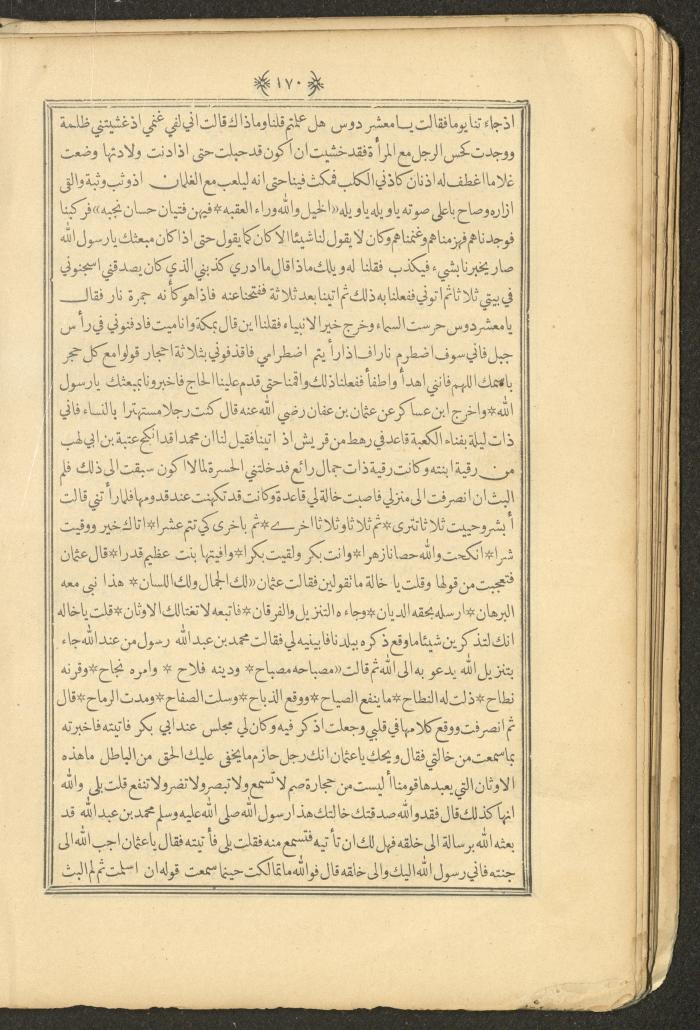 ١٧٠
اذ جاء تنا يوما فقالت يا معشر دوس هل علمتم قلنا وما ذاك قالت اني لفي غنمي اذ غشيتني ظلمة
ووجدت كحس الرجل مع المرأة فقد خشيت ان اكون قد حبلت حتى اذا دنت ولادتها وضعت
غلاما اغطف له اذنان كاذني الكلب فمكث فينا حتى انه ليلعب مع الغلمان اذ وثب وثبة والقى
ازاره وصاح باعلى صوته ياويله ياويله «الخيل والله وراء العقبه * فيهن فتيان حسان نجبه» فركبنا
فوجدناهم فهزمناهم وغنمناهم وكان لا يقول لنا شيئا الا كان كما يقول حتى اذا كان مبعثك يارسول الله
صار يخبرنا بشيء فيكذب فقلنا له ويلك ماذا قال ما ادري كذبني الذي كان يصدقني اسجنوني
في بيتي ثلاثا ثم اتوني ففعلنا به ذلك ثم اتينا بعد ثلاثة ففتحنا عنه فاذا هو كأنه جمرة نار فقال
يا معشر دوس حرست السماء وخرج خير الانبياء فقلنا اين قال بمكة وانا ميت فادفنوني في رأس
جبل فاني سوف اضطرم نارا فاذا رأيتم اضطرامي فاقذفوني بثلاثة احجار قولوا مع كل حجر
باسمك اللهم فانني اهدأ واطفأ ففعلنا ذلك واقمنا حتى قدم علينا الحاج فاخبرونا بمبعثك يا رسول
الله * واخرج ابن عساكر عن عثمان بن عفان رضي الله عنه قال كنت رجلا مستهترا بالنساء فاني
ذات ليلة بفناء الكعبة قاعد في رهط من قريش اذ اتينا فقيل لنا ان محمدا قد انكح عتبة بن ابي لهب
من رقية ابنته وكانت رقية ذات جمال رائع فدخلتني الحسرة لما لا اكون سبقت الى ذلك فلم
البث ان انصرفت الى منزلي فاصبت خالة لي قاعدة وكانت قد تكهنت عند قدومها فلما رأتني قالت
أبشر وحييت ثلاثا تترى * ثم ثلاثا وثلاثا اخرے * ثم باخرى كي تتم عشرا * اتاك خير ووقيت
شرا * انكحت والله حصانا زهرا * وانت بكر ولقيت بكرا * وافيتها بنت عظيم قدرا * قال عثمان
فتعجبت من قولها وقلت يا خالة ما تقولين فقالت عثمان «لك الجمال ولك اللسان * هذا نبي معه
البرهان * ارسله بحقه الديان * وجاءه التنزيل والفرقان * فاتبعه لا تغتالك الاوثان * قلت يا خاله
انك لتذكرين شيئا ما وقع ذكره ببلدنا فابينيه لي فقالت محمد بن عبد الله رسول من عند الله جاء
بتنزيل الله يدعو به الى الله ثم قالت «مصباحه مصباح * ودينه فلاح * وامره نجاح * وقرنه
نطاح * ذلت له النطاح * ما ينفع الصياح * ووقع الذباح * وسلت الصفاح * ومدت الرماح * قال
ثم انصرفت ووقع كلامها في قلبي وجعلت اذكر فيه وكان لي مجلس عند ابي بكر فاتيته فاخبرته
بما سمعت من خالتي فقال ويحك يا عثمان انك رجل حازم ما يخفى عليك الحق من الباطل ما هذه
الاوثان التي يعبدها قومنا أليست من حجارة صم لا تسمع ولا تبصر ولا تضر ولا تنفع قلت بلى والله
انها كذلك قال فقد والله صدقتك خالتك هذا رسول الله صلى الله عليه وسلم محمد بن عبد الله قد
بعثه الله برسالة الى خلقه فهل لك ان تأتيه فتسمع منه فقلت بلى فأتيته فقال يا عثمان اجب الله الى
جنته فاني رسول الله اليك والى خلقه قال فوالله ما تمالكت حينما سمعت قوله ان اسلمت ثم لم البث